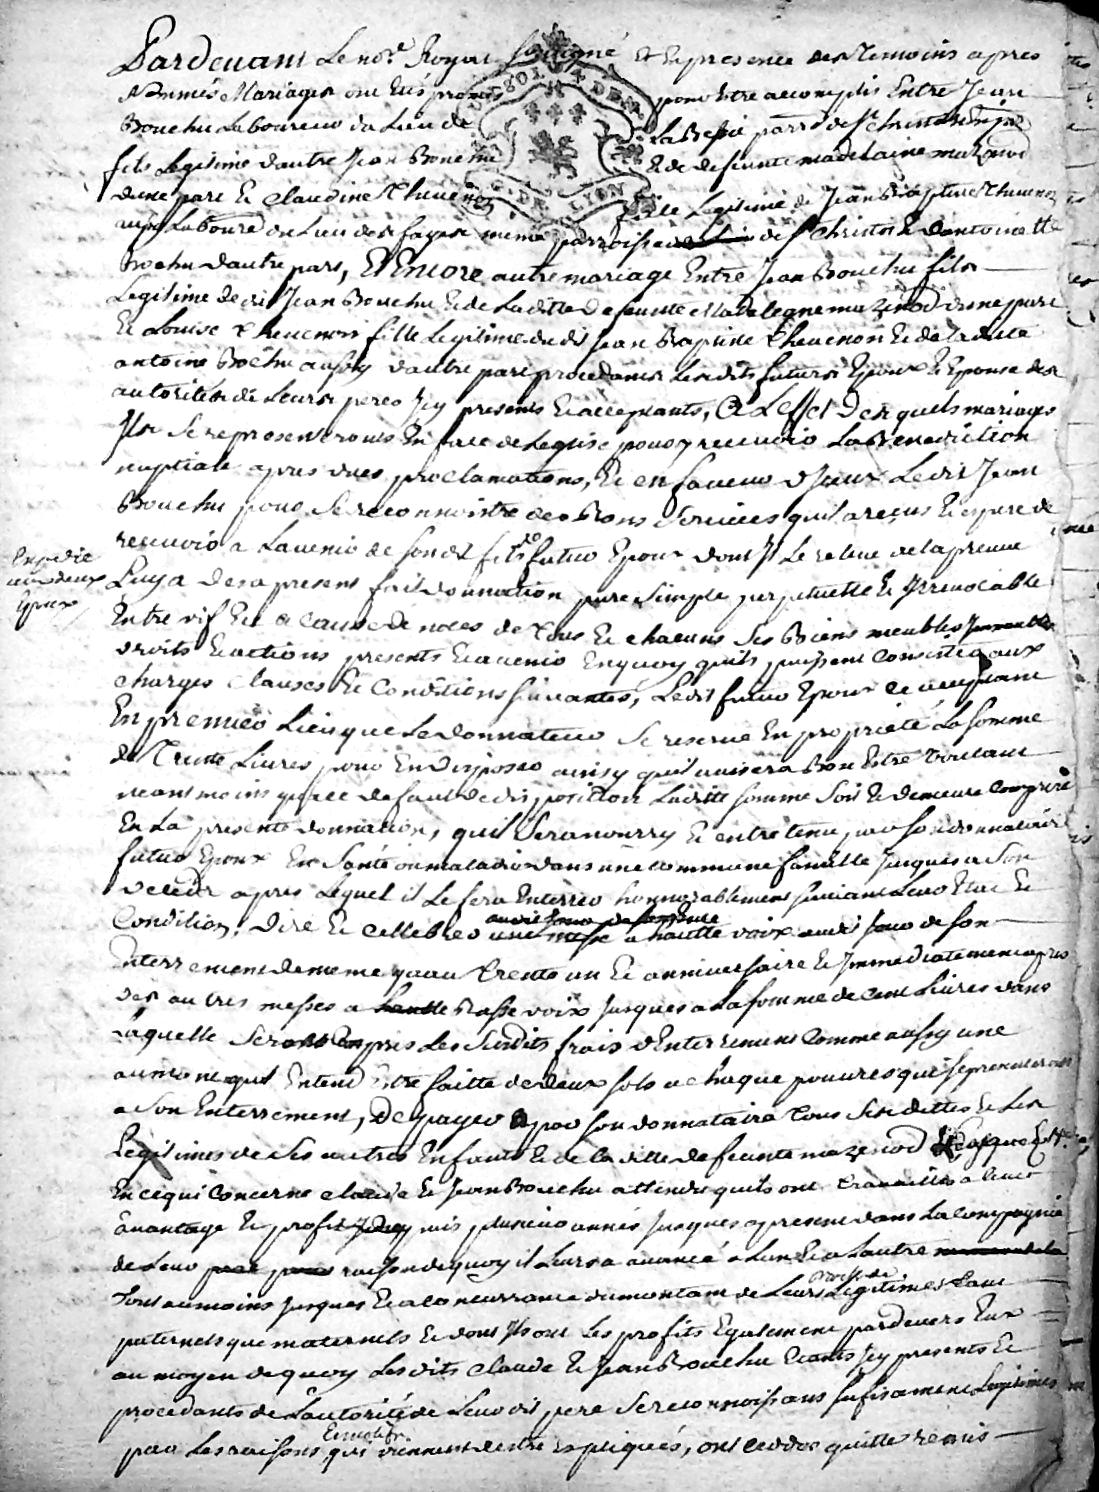 Pardevant Le no.re Royal soussigné et En presence des Temoins apres
Nommés Mariages ont Etés promis pour Estre accomplis Entre Jean
Bouchu Laboureur du Lieu de La Bessie parr.e de St christ
fils Legitime d'autre Jean Bouchu & de defeunte madelaine mazenod
d'une part Et claudine Thevenon fille Legitime de Jean Baptiste Thevenon
aussy Laboure du Lieu des fayes meme parroisse de St Christ & d'antoinette
Bochu d'autre part, Et Encore autre mariage Entre Jean Bouchu fils
Legitime dedit Jean Bouchu Et de Laditte defeunte Madelegne mazenod d'une part
Et Louise Thevenon fille Legitime dudit Jean Baptiste Thevenon Et de Laditte
antoine Bochu aussy d'autre part procedants Lesdits futurs Epoux & Epouse des
autorités de Leurs peres Jcy presents Et acceptants, A L'effet Desquels mariages
Jls Se representeronts En face de Leglise pour y recevoir La Benediction
nuptiale apres dues proclamations, Et en faveur d'Jceux Ledit Jean
Bouchu pour Se reconnoistre des Bons Services qu'il a reçus Et espere de
recevoir a Lavenir de sondt fils futur Epoux dont Jl Le releve de la preuve
Luy a Des a present fait donnation pure Simple perpetuelle & Jrrevocable
Entre vif Et a cause de noces de Tous Et chacuns Ses Biens meubles Jmmeubles
droits Et actions presents Et avenir Enquoy quils puissent Consister aux
charges clauses Et Conditions suivantes, Ledit futur Epoux ce acceptant
En premier Lieu que Le donnateur Se reserve En propriété La somme
de Trente Livres pour En disposer ainsy quil avisera Bon Estre voulant
neantmoins qu'a defaut de disposition Laditte somme Soit Et demeure Comprise
En La presente donnation, quil Sera nourry Et entretenu par son donnataire
futur Epoux En Santé ou maladie dans une commune famille Jusques a Son
deced apres Lequel il Le fera Enterrer honnorablement suivant Leur Etat Et
Condition, Dire Et cellebrer une messe a hautte voix audt jour de son
Enterrement de meme qu'au Trente un Et anniversaire Et Jmmediatement apres
des autres messes a hautte Basse voix Jusques a La somme de Cent Livres dans
Laquelle Seront Compris Les Surdits frais d'Enterrement Comme aussy une
aumone quil Entend Estre faitte de deux sols a chaque pauvres qui se presenteront
a Son Enterrement, De payer par son donnataire Tous Ses dettes Et Les
Legitimes de Ses autres Enfants Et de la ditte defeunte mazenod
En ce qui Concerne claude Et Jean Bouchu attendu quils ont Travaillés a Leur
avantage Et profit puis plusieurs années Jusques a present dans La Compagnie
de Leur raison de quoy il Leurs a avancé a Lun Et a Lautre
Tout au moins Jusques Et a concurrance du montant de Leurs Legitimes Tant
paternels que maternels Et dont Jls ont Les profits Egalement pardevers Eux
au moyen de quoy Lesdits claude Et Jean Bouchu Etants Jcy presents Et
procedants de Lautorité de Leur dit pere Se reconnoissans sufisament Legitimes
par Les raisons qui viennent d'estre expliqués, ont ceddés quitté remis
Expedié
aux deux
Epoux